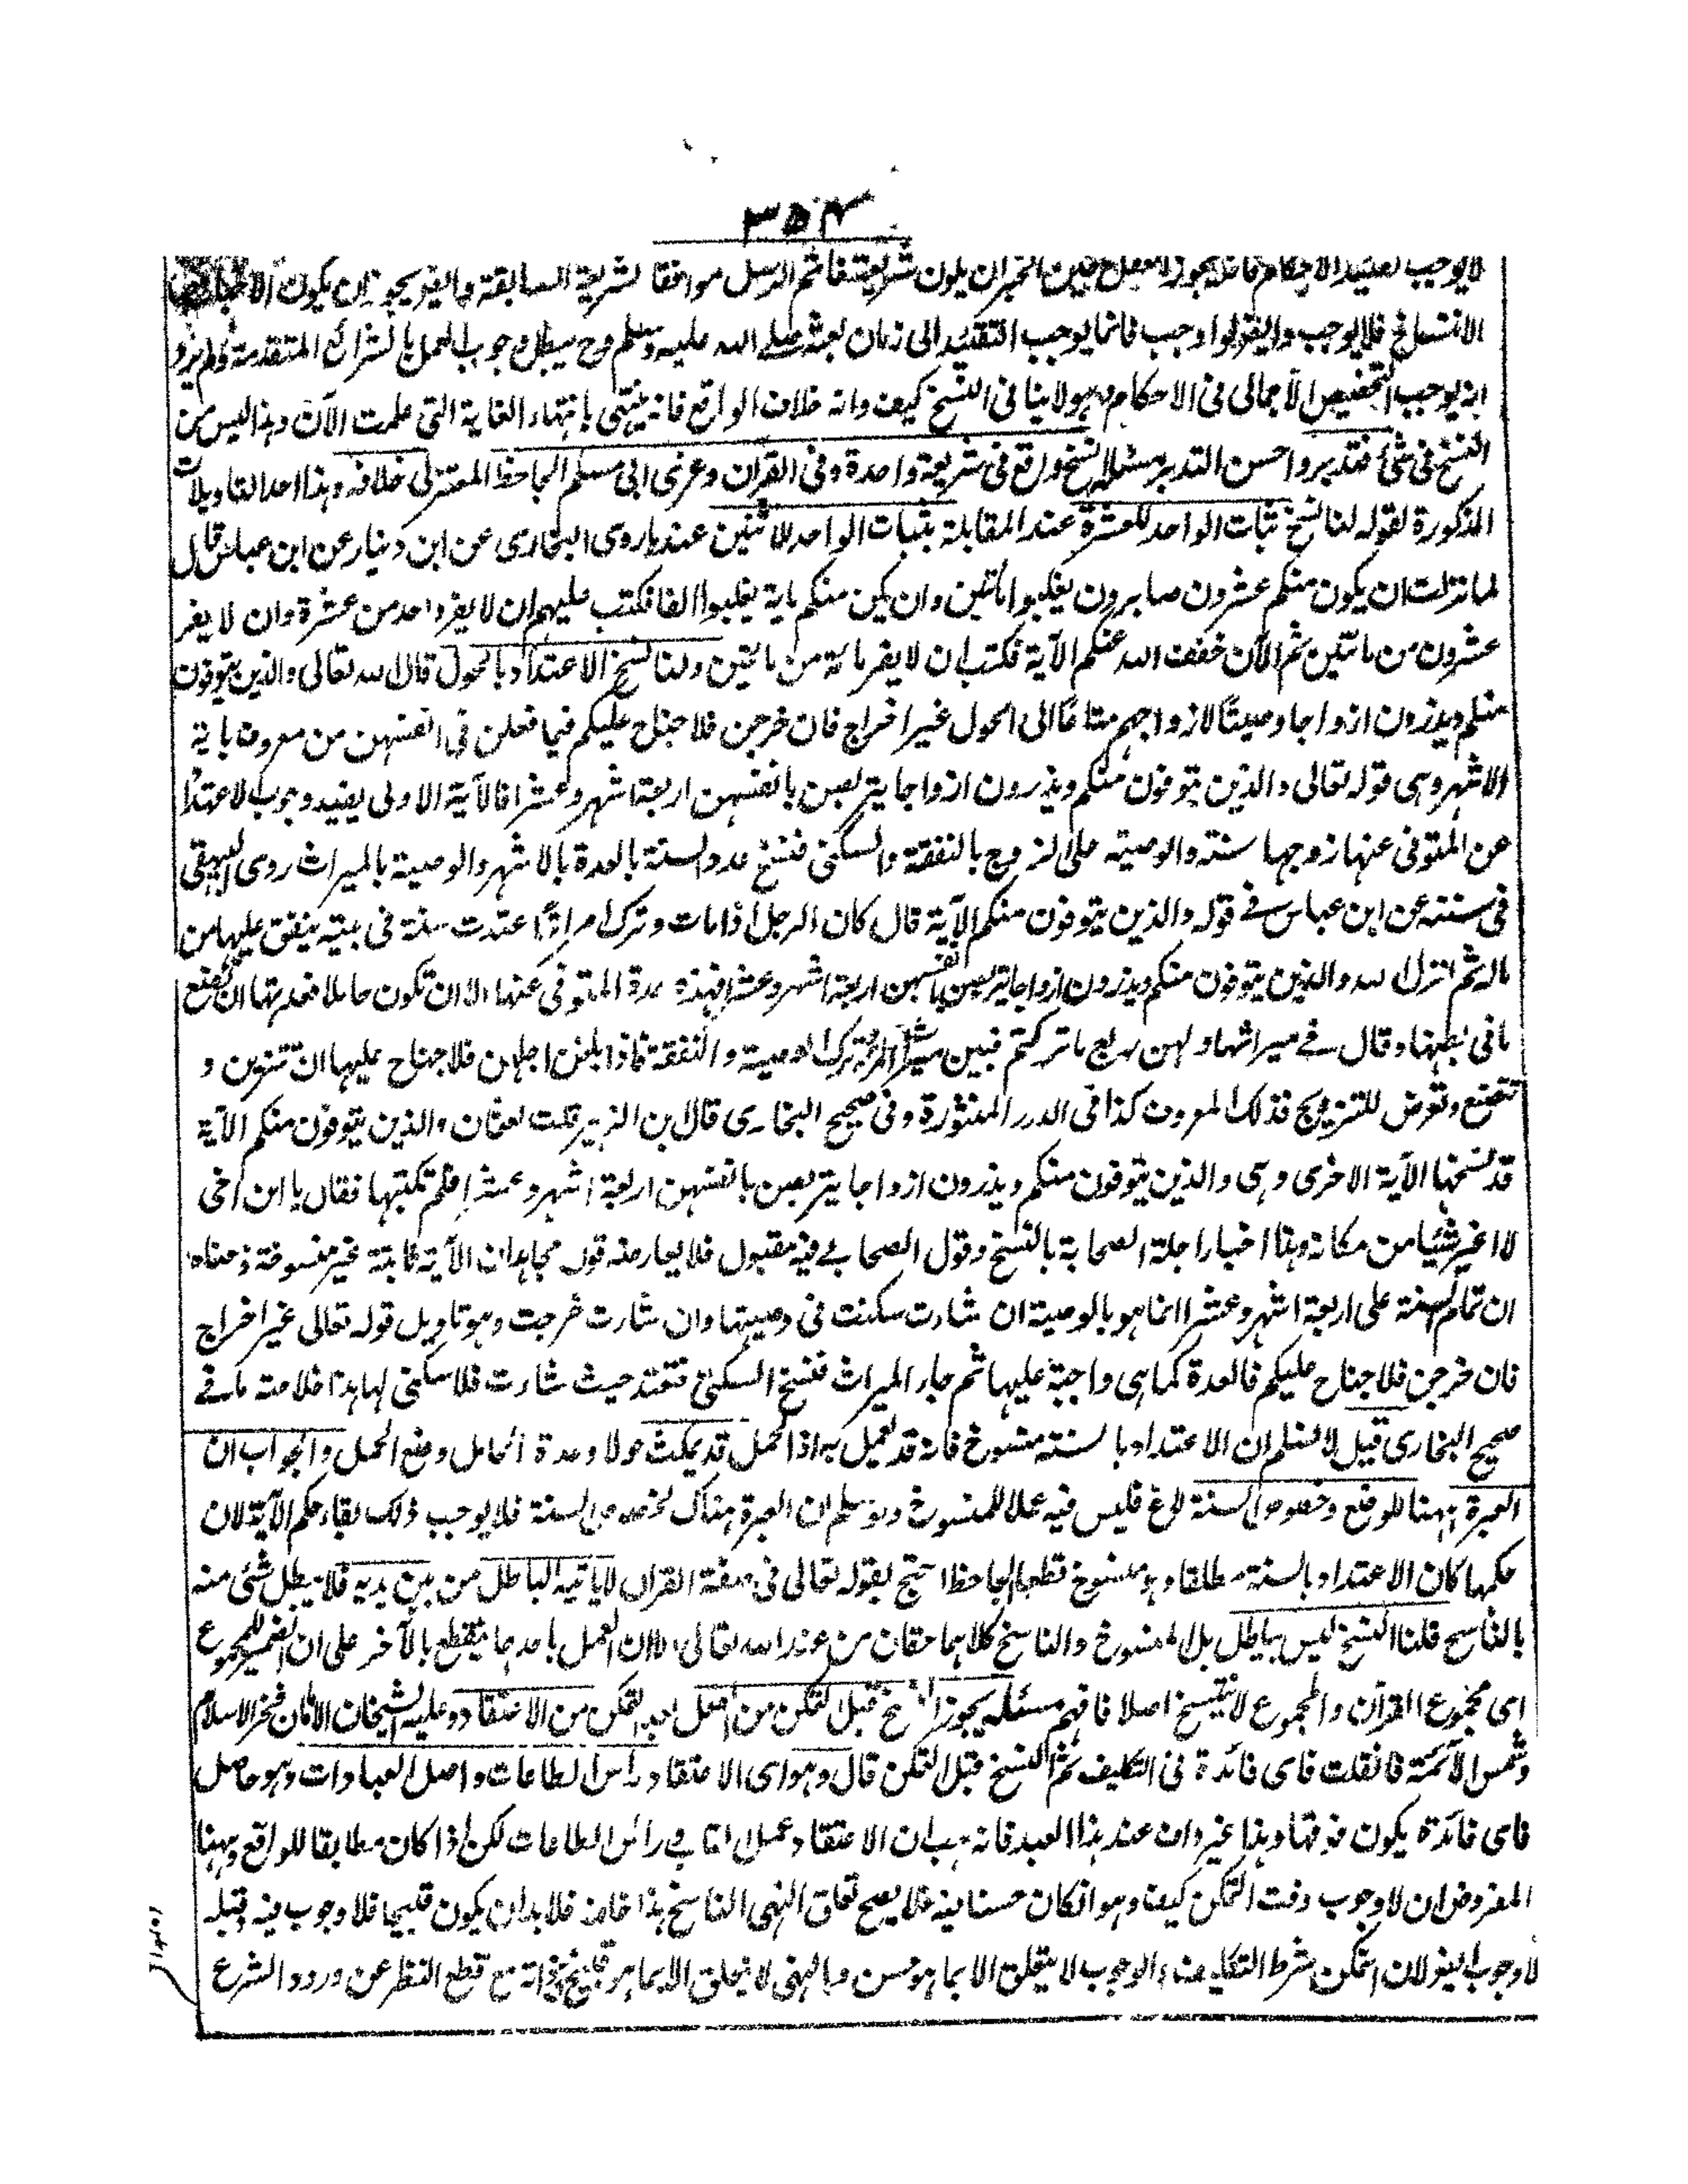 ٣٥٤
لا يوجب تقييد الاحكام فانه يجوز ان يكون شريعة خاتم الرسل موافقا لشريعة السابقة وايضا يجوز ان يكون
الانتساخ فلا يوجب وايضا لو اوجب فانما يوجب التقييد الى زمان بعثته صلى الله عليه وسلم وح يبطل وجوب العمل بالشرائع المتقدمة ولم يزد
انه يوجب التخصيص الاجمالى فى الاحكام وهو لا ينافى النسخ كيف وانه خلاف الواقع فانه ينتهى بانتهاء الغاية التى علمت الآن وهذا ليس من
النسخ فى شئ فتدبر واحسن التدبر مسئلة النسخ واقع فى شريعة واحدة وفى القران وعزى الى ابى مسلم الجاحظ المعتزلى خلافه وهذا احد التاويلات
المذكورة لقوله لنا نسخ ثبات الواحد للعشرة عند المقابلة بثبات الواحد للاثنين عندنا روى البخارى عن ابن دينار عن ابن عباس قال
لما نزلت ان يكون منكم عشرون صابرون يغلبوا مائتين وان يكن منكم ماية يغلبوا الفا فكتب عليهم ان لا يفر واحد من عشرة وان لا يفر
عشرون من مائتين ثم الآن خفف الله عنكم الآية فكتب ان لا يفر مائة من مائتين ولنا نسخ الاعتداد بالحول قال الله تعالى والذين يتوفون
منكم ويذرون ازواجا وصية لازواجهم متاعا الى الحول غير اخراج فان خرجن فلا جناح عليكم فيما فعلن فى انفسهن من معروف باية
الاشهر وهى قوله تعالى والذين يتوفون منكم ويذرون ازواجا يتربصن بانفسهن اربعة اشهر وعشرا فالآية الاولى يفيد وجوب الاعتداد
عن المتوفى عنها زوجها سنة والوصية على الزوج بالنفقة والسكنى فنسخ عدد السنة بالعدة بالاشهر والوصية بالميراث روى البيهقى
فى سننه عن ابن عباس فى قوله والذين يتوفون منكم الآية قال كان الرجل اذا مات وترك امرأة اعتدت سنة فى بيته ينفق عليها من
ماله ثم انزل الله والذين يتوفون منكم ويذرون ازواجا يتربصن بانفسهن اربعة اشهر وعشرا فهذه عدة المتوفى عنها الا ان تكون حاملا فعدتها ان تضع
ما فى بطنها وقال فى ميراثها ولهن الربع مما تركتم فبين ميراث المرأة وترك الوصية والنفقة فاذا بلغن اجلهن فلا جناح عليها ان تتزين و
تتصنع وتعرض للتزويج فذلك المعروف كذا فى الدرر المنثورة وفى صحيح البخارى قال ابن الزبير قلت لعثمان والذين يتوفون منكم الآية
قد نسختها الآية الاخرى وهى والذين يتوفون منكم ويذرون ازواجا يتربصن بانفسهن اربعة اشهر وعشرا فلم تكتبها فقال يا ابن اخى
لا اغير شيئا من مكانه وهذا اخبار اجلة الصحابة بالنسخ وقول الصحابى فيه مقبول فلا يعارضه قول مجاهد ان الآية ثابتة غير منسوخة ومعناه
ان تمام السنة على اربعة اشهر وعشرا انما هو بالوصية ان شاءت سكنت فى وصيتها وان شاءت خرجت وهو تاويل قوله تعالى غير اخراج
فان خرجن فلا جناح عليكم فالعدة كما هى واجبة عليها ثم جاء الميراث فنسخ السكنى فتعتد حيث شاءت فلا سكنى لها هذا خلاصة ما فى
صحيح البخارى قيل لا نسلم ان الاعتداد بالسنة منسوخ فانه قد يعمل به اذا الحمل قد يمكث حولا وعدة الحامل وضع الحمل والجواب ان
العبرة ههنا للوضع وخصوص السنة لاغ فليس فيه عملا للمنسوخ ولو سلم ان العبرة هناك لخصوص السنة فلا يوجب ذلك بقاء حكم الآية لان
حكمها كان الاعتداد بالسنة مطلقا وهو منسوخ قطعا الجاحظ احتج بقوله تعالى فى صفة القران لا ياتيه الباطل من بين يديه فلا يبطل شئ منه
بالناسخ قلنا النسخ ليس بباطل بل المنسوخ والناسخ كلاهما حقان من عند الله تعالى الا ان العمل باحدهما ينقطع بالآخر على ان الضمير للمجموع
اى مجموع القرآن والمجموع لا ينتسخ اصلا فافهم مسئلة يجوز النسخ قبل التمكن من الفعل بعد التمكن من الاعتقاد وعليه الشيخان الامامان فخر الاسلام
وشمس الائمة فان قلت فاى فائدة فى التكليف ثم النسخ قبل التمكن قال وهو اى الاعتقاد رأس الطاعات واصل العبادات وهو حاصل
فاى فائدة يكون فوقها وهذا غير واف عند هذا العبد فانه هب ان الاعتقاد عمل القلب رأس الطاعات لكن اذا كان مطابقا للواقع وههنا
المفروض ان لا وجوب وقت التمكن كيف وهو ان كان حسنا فيه فلا يصح تعلق النهى الناسخ هذا خلف فلا بد ان يكون قبيحا فلا وجوب فيه وقبله
لا وجوب ايضا لان التمكن شرط التكليف والوجوب لا يتعلق الا بما هو حسن والنهى لا يتعلق الا بما هو قبيح فى ذاته مع قطع النظر عن ورود الشرع